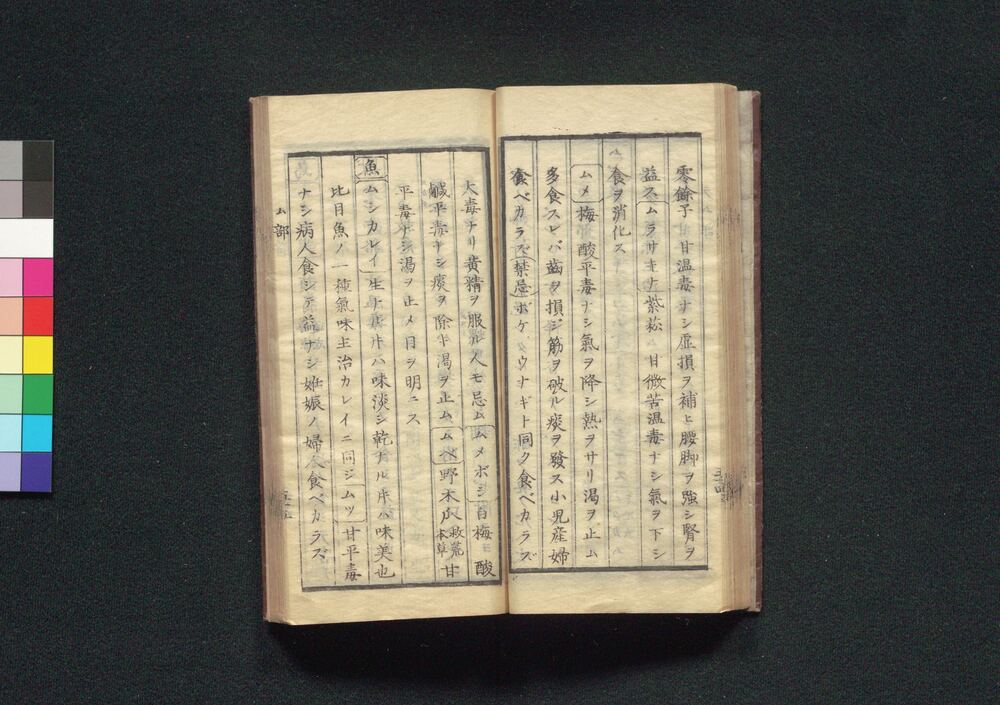 零餘子 甘温毒ナシ虚損ヲ補ヒ腰脚ヲ強シ腎ヲ
益ス ムラサキナ 紫菘 甘微苦温毒ナシ氣ヲ下シ
食ヲ消化ス
ムメ 梅 酸平毒ナシ氣ヲ降シ熱ヲサリ渇ヲ止ム
多食スレバ齒ヲ損シ筋ヲ破ル痰ヲ發ス小児産婦
食ベカラズ 禁忌 ボケ ウナギト同ク食ベカラズ
大毒ナリ黄精ヲ服ル人モ忌ム ムメボシ 白梅 酸
鹹平毒ナシ痰ヲ除キ渇ヲ止ム ムベ 野木瓜 救荒本草 甘
平毒ナシ渇ヲ止メ目ヲ明ニス
魚 ムシカレイ 生ナル片ハ味淡シ乾ナル片ハ味美也
比目魚ノ一種氣味主治カレイニ同ジ ムツ 甘平毒
ナシ病人食シテ益ナシ妊娠ノ婦人食ベカラズ
ム部